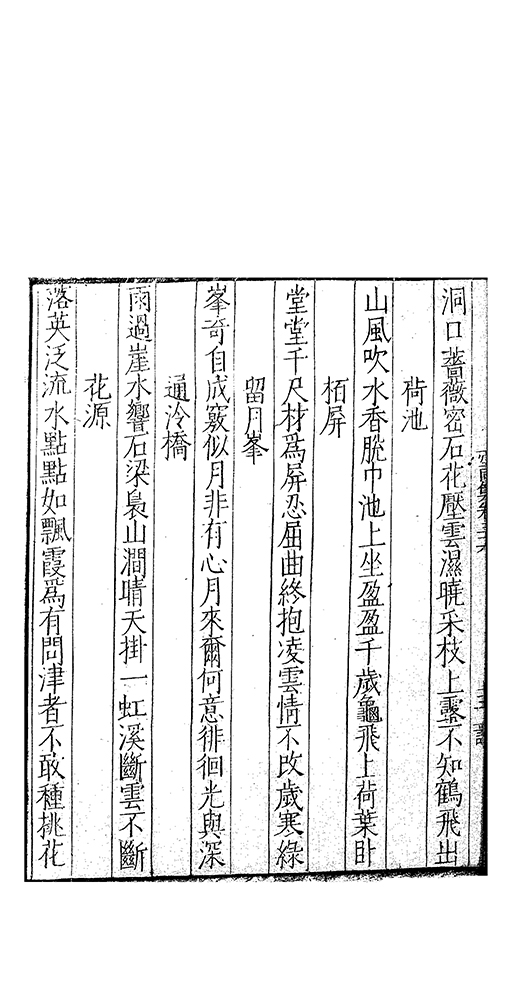 洞口薔薇密石花壓雲濕曉采枝上露不知鶴飛出
荷池
山風吹水香脫巾池上坐盈盈千歲龜飛上荷葉卧
栢屏
堂堂千尺材爲屏忍屈曲終抱凌雲情不改歲寒綠
留月峯
峯奇自成竅似月非有心月來爾何意徘徊光與深
通泠橋
雨過崖水響石梁裊山澗晴天掛一虹溪斷雲不斷
花源
落英泛流水點點如飄霞爲有問津者不敢種桃花